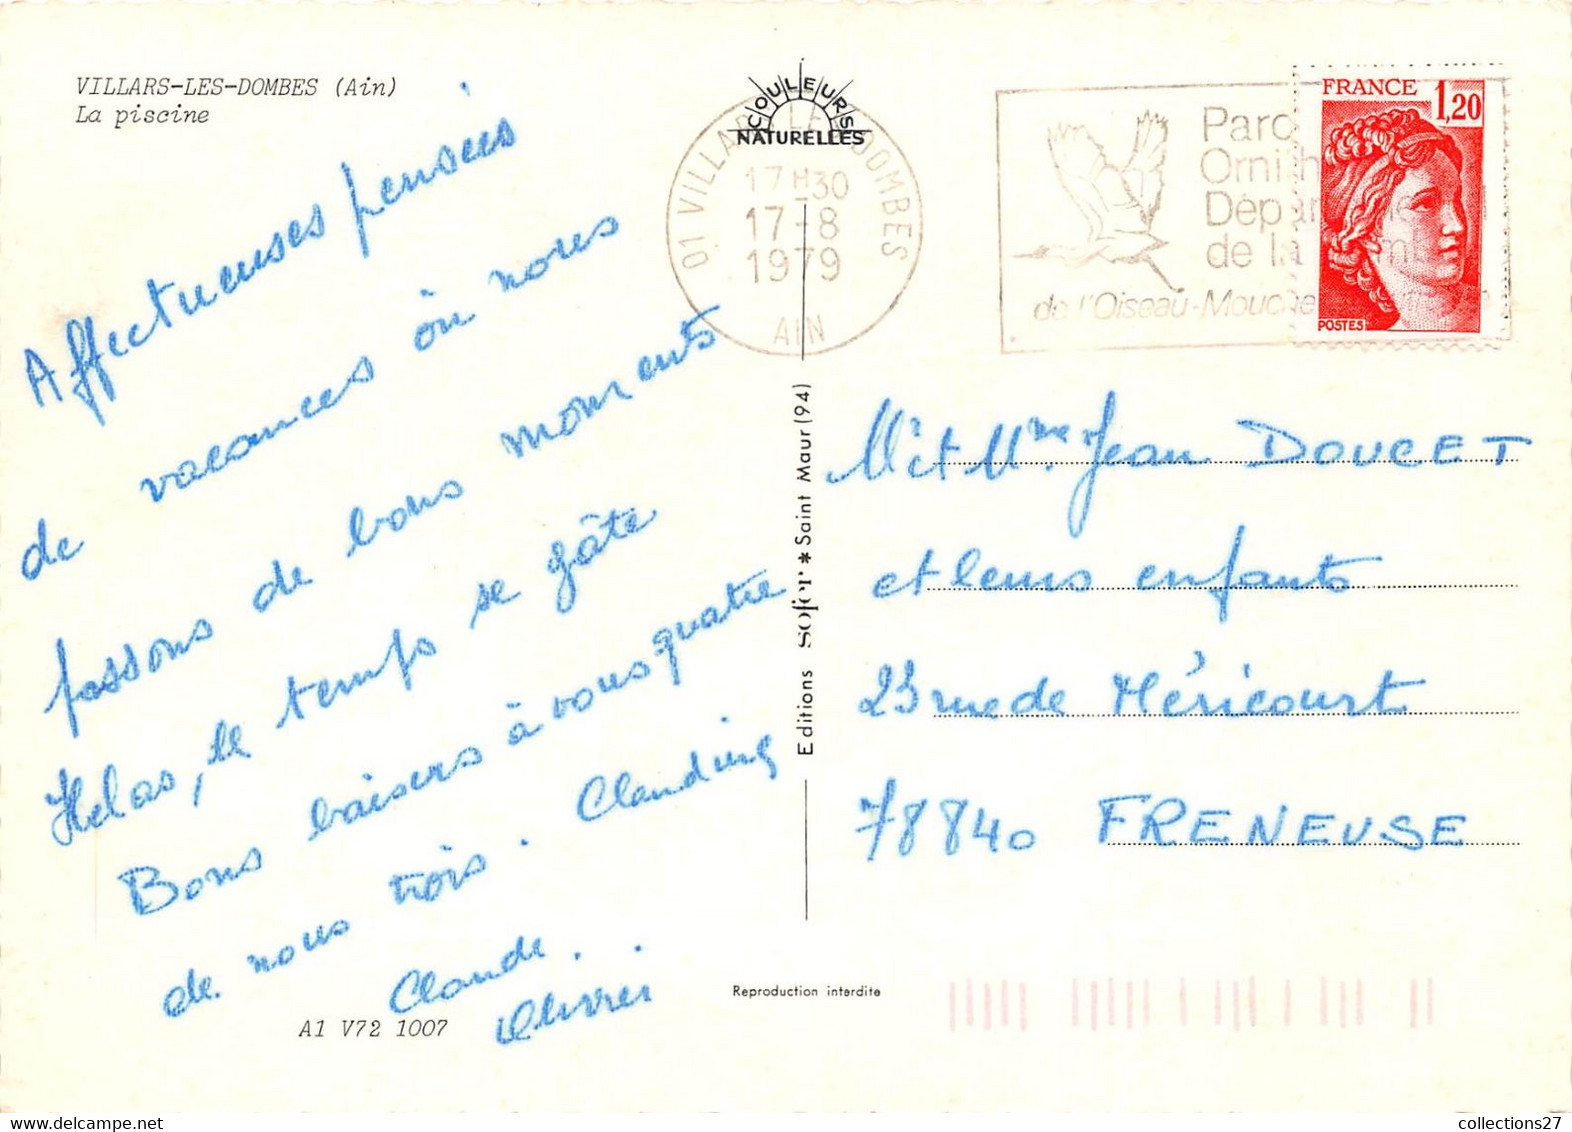 VILLARS-LES-DOMBES (Ain)
La piscine
COULEURS
NATURELLES
01 VILLARS LES DOMBES
17H30
17-8
1979
AIN
Parc
Ornith
Dépar
de la
de l'Oiseau-Mouche
FRANCE
1,20
POSTES
Affectueuses pensées
de vacances où nous
passons de bons moments
Hélas, le temps se gâte
Bons baisers à vous quatre
de nous trois. Claudine
Claude.
Olivier.
Editions sofer * Saint Maur (94)
Mr et Mme Jean DOUCET
et leurs enfants
23 rue de Méricourt
78840 FRENEUSE
Reproduction interdite
A1 V72 1007
collections27